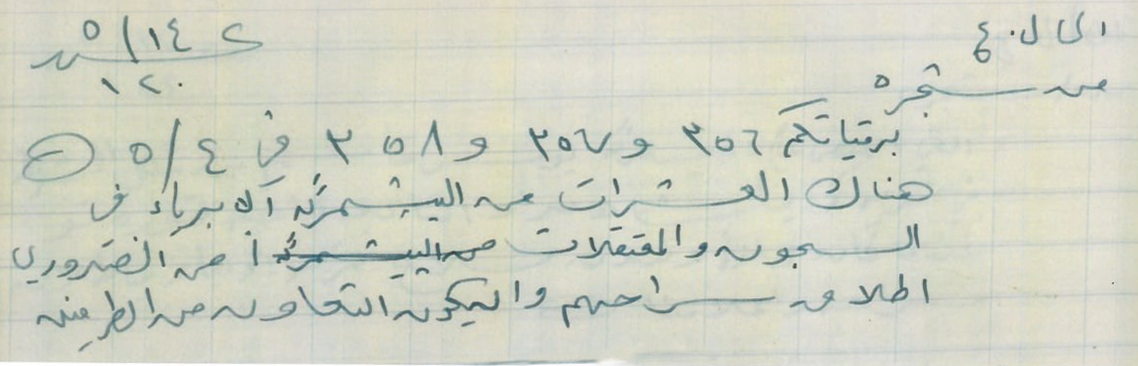 الى ل.٤
١٤/٥
من شجره
١٢٠
برقياتكم ٣٥٦ و ٣٥٧ و ٣٥٨ في ٤/٥
هناك العشرات من البيشمرگه الابرياء في
السجون والمعتقلات من البيشمرگه من الضروري
اطلاق سراحهم وليكون التعاون من الطرفين